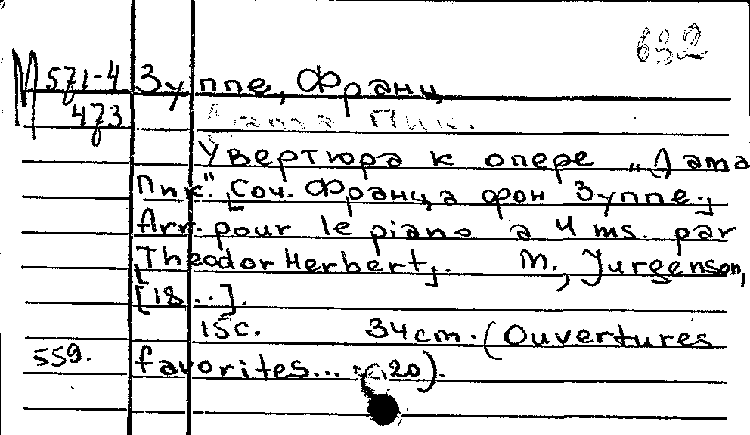 632
М 571-4 Зуппе, Франц
473 Дама Пик.
Увертюра к опере „Дама
Пик". [Соч. Франца фон Зуппе.]
Arr. pour le piano a 4 ms. par
[Theodor Herbert]. М., Jurgenson,
[18..].
15с. 34cm. (Ouvertures
559. favorites... 20).